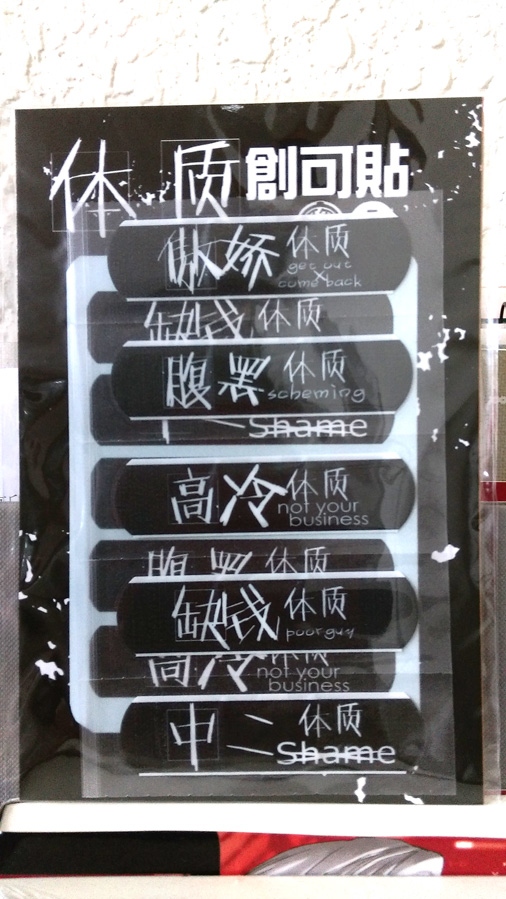 体质創可貼
傲娇体质
get out
come back
缺钱体质
腹黑体质
scheming
Shame
高冷体质
not your
business
腹黑体质
缺钱体质
poor guy
高冷体质
not your
business
中二体质
Shame